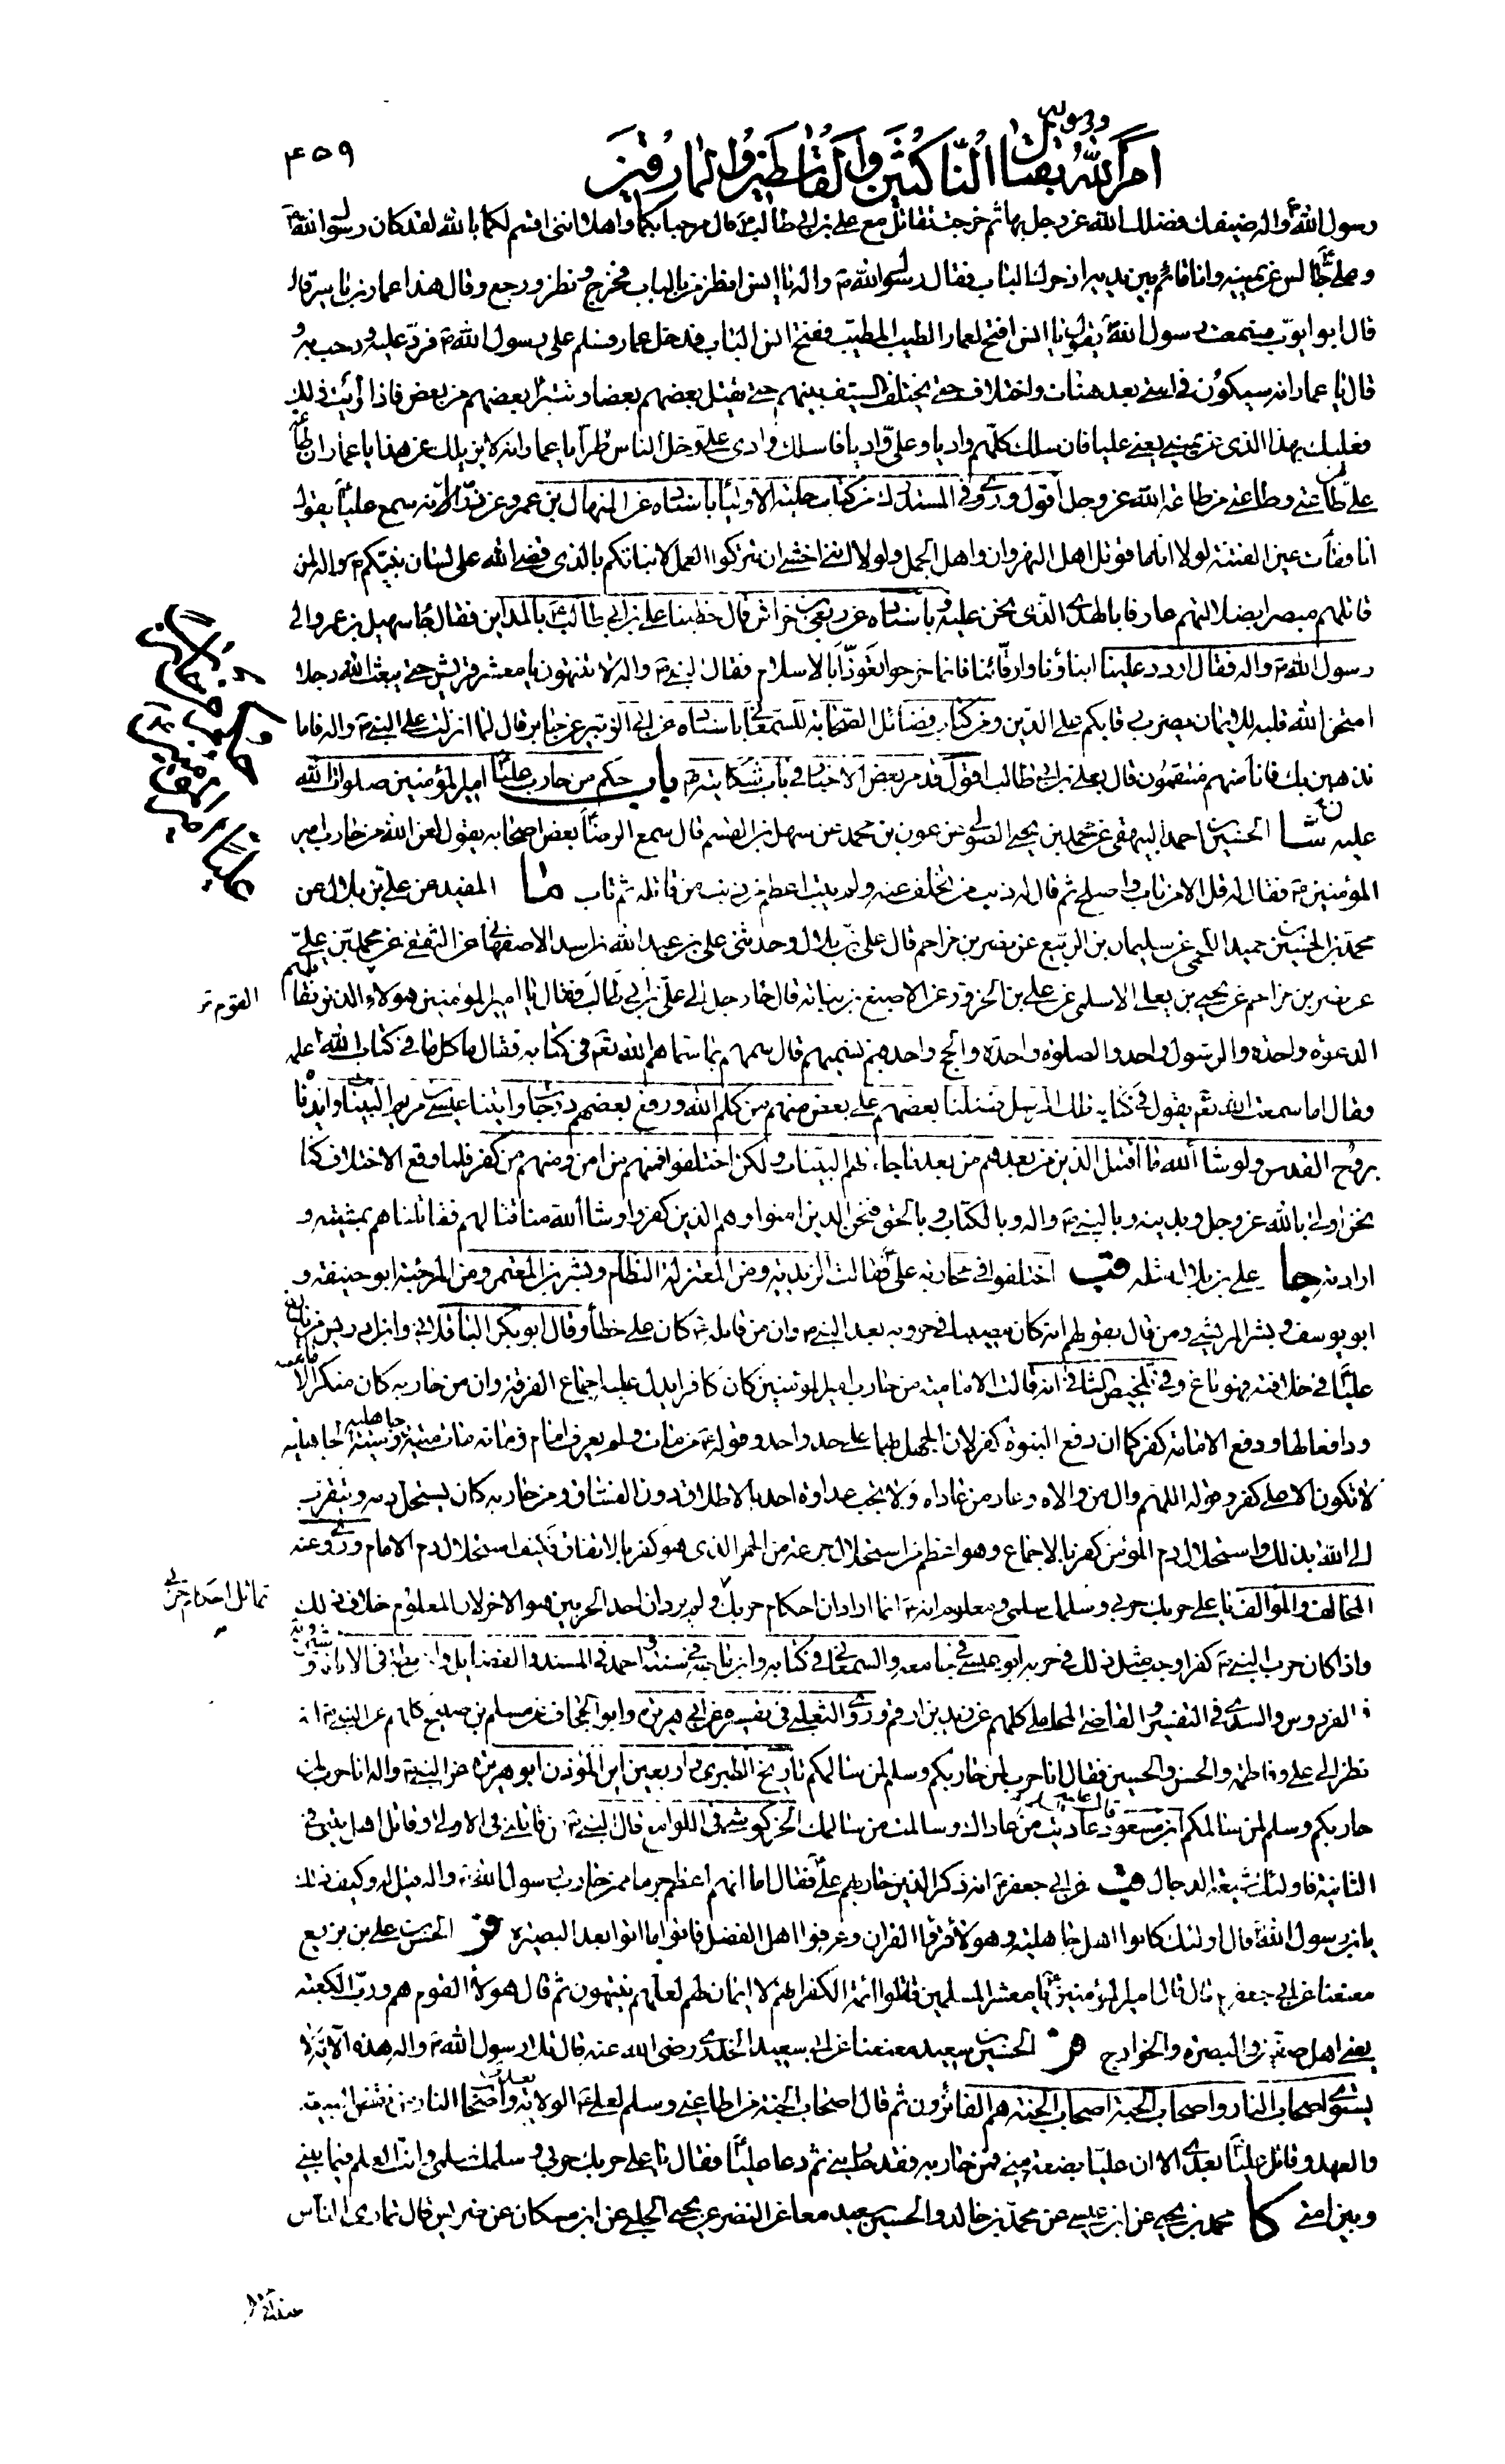 امر الله ورسوله بقتال الناكثين والقاسطين والمارقين
٤٥٩
رسول الله ص واله ضيفك فضلك الله عز وجل بها ثم خرجت تقاتل مع علي بن ابي طالب ع قال مرحبا بكما واهلا انني اقسم لكما بالله لقد كان رسول الله ص
وعلي ع جالس عن يمينه وانا قائم بين يديه اذ حرك الباب فقال رسول الله ص واله يا انس انظر من بالباب فخرج ونظر ورجع وقال هذا عمار بن ياسر قال
قال ابو ايوب سمعت رسول الله ص يقول يا انس افتح لعمار الطيب المطيب ففتح انس الباب فدخل عمار فسلم على رسول الله ص فرد عليه ورحب به و
قال يا عمار انه سيكون في امتي بعدي هنات واختلاف حتى يختلف السيف بينهم حتى يقتل بعضهم بعضا وتتبرأ بعضهم من بعض فاذا رأيت ذلك
فعليك بهذا الذي عن يميني يعني عليا فان سلك كلهم واديا وعلي واديا فاسلك وادي علي وخل الناس طرا يا عمار انه لا يزيلك عن هدى يا عمار ان طاعة
علي من طاعتي وطاعتي من طاعة الله عز وجل اقول وروى في المستدرك من كتاب حلية الاولياء باسناده عن المنهال بن عمرو عن زر انه سمع عليا ع يقول
انا فقأت عين الفتنة لولا انا ما قوتل اهل النهروان واهل الجمل ولولا انني اخشى ان تتركوا العمل لانبأتكم بالذي قضى الله على لسان نبيكم ص واله لمن
قاتلهم مبصرا بضلالتهم عارفا بالهدى الذي نحن عليه وباسناده عن ربعي بن خراش قال خطبنا علي بن ابي طالب ع بالمداين فقال جاء سهيل بن عمرو الى
رسول الله ص واله فقال اردد علينا ابناؤنا وارقائنا فانما خرجوا تعوذا بالاسلام فقال النبي ص واله لا تنتهون يا معشر قريش حتى يبعث الله رجلا
امتحن الله قلبه للايمان يضرب رقابكم على الدين ومن كتاب فضائل الصحابة للسمعاني باسناده عن ابي الزبير عن جابر قال لما انزلت على النبي ص واله فاما
نذهبن بك فانا منهم منتقمون قال بعلي بن ابي طالب اقول قد مر بعض الاخبار في باب شكايته ع باب حكم من حارب عليا امير المؤمنين صلوات الله
عليه ن الحسين بن احمد البيهقي عن محمد بن يحيى الصولي عن عون بن محمد عن سهل بن القسم قال سمع الرضا ع بعض اصحابه يقول لعن الله من حارب امير
المؤمنين ع فقال له قل الا من تاب واصلح ثم قال له ذنب من تخلف عنه ولم يتب اعظم من ذنب من قاتله ثم تاب ما المفيد عن علي بن بلال عن
محمد بن الحسين بن حميد اللخمي عن سليمان بن الربيع عن نصر بن مزاحم قال علي بن بلال وحدثني علي بن عبد الله بن اسد الاصفهاني عن الثقفي عن محمد بن علي
عن نصر بن مزاحم عن يحيى بن يعلى الاسلمي عن علي بن الحزور عن الاصبغ بن نباته قال جاء رجل الى علي بن ابي طالب فقال يا امير المؤمنين هولاء الذين نقاتلهم
الدعوة واحدة والرسول واحد والصلوة واحدة والحج واحد فبم نسميهم قال سمهم بما سماهم الله تعم في كتابه فقال ما كل ما في كتاب الله اعلمه
فقال اما سمعت الله تعم يقول في كتابه تلك الرسل فضلنا بعضهم على بعض منهم من كلم الله ورفع بعضهم درجات وآتينا عيسى بن مريم البينات وايدناه
بروح القدس ولو شاء الله ما اقتتل الذين من بعدهم من بعد ما جاءتهم البينات ولكن اختلفوا فمنهم من امن ومنهم من كفر فلما وقع الاختلاف كنا
نحن اولى بالله عز وجل وبدينه وبالنبي ص واله وبالكتاب وبالحق فنحن الذين امنوا وهم الذين كفروا وشاء الله منا قتالهم فقاتلناهم بمشيته و
ارادته جا علي بن بلال مثله قب اختلفوا في محاربة علي ع فقالت الزيدية ومن المعتزلة النظام وبشر بن المعتمر ومن المرجئة ابو حنيفة و
ابو يوسف وبشر المريسي ومن قال بقولهم انه كان مصيبا في حروبه بعد النبي ص وان من قاتله ع كان على خطأ وقال ابو بكر الباقلاني وابن ادريس من نازع
عليا في خلافته فهو باغ وفي تلخيص الشافي انه قالت الامامية من حارب امير المؤمنين كان كافرا يدل عليه اجماع الفرقة وان من حاربه كان منكرا لامامته
ودافعا لها ودفع الامامة كفر كما ان دفع النبوة كفر لان الجهل بهما على حد واحد وقوله ع من مات ولم يعرف امام زمانه مات ميتة جاهلية وميتة الجاهلية
لا تكون الا على كفر وقوله اللهم وال من والاه وعاد من عاداه ولا يجب عداوة احد بالاطلاق دون الفساق ومن حاربه كان يستحل دمه ويتقرب
الى الله بذلك واستحلال دم المؤمن كفر بالاجماع وهو اعظم من استحلال جرعة من الخمر الذي هو كفر بالاتفاق فكيف استحلال دم الامام وروى عنه
المخالف والموالف يا علي حربك حربي وسلمك سلمي ومعلوم انه ع انما اراد ان احكام حربك ولم يرد ان احد الحربين هو الاخر لان المعلوم خلاف ذلك
واذا كان حرب النبي ص كفرا وجب مثل ذلك في حربه ابو عيسى في جامعه والسمعاني في كتابه وابن ماجة في سننه واحمد في المسند والفضايل وابن بطة في الابانة و شيرويه
في الفردوس والسدي في التفسير والقاضي المحاملي كلهم عن زيد بن ارقم وروى الثعلبي في تفسيره عن ابي هريرة وابو الجحاف عن مسلم بن صبيح كلهم عن النبي ص انه
نظر الى علي وفاطمة والحسن والحسين فقال انا حرب لمن حاربكم وسلم لمن سالمكم تاريخ الطبري واربعين ابن المؤذن ابو هريرة عن النبي ص واله انا حرب لمن
حاربكم وسلم لمن سالمكم ابن مسعود قال عاديت من عاداك وسالمت من سالمك الخركوشي في اللوامع قال النبي ص من قاتلني في الاولى وقاتل اهل بيتي في
الثانية فاولئك شيعة الدجال قب عن ابي جعفر ع انه ذكر الذين حاربهم علي ع فقال اما انهم اعظم جرما ممن حارب رسول الله ص واله قيل له وكيف ذلك
يا بن رسول الله قال اولئك كانوا اهل جاهلية وهولاء قرؤا القران وعرفوا اهل الفضل فاتوا ما اتوا بعد البصيرة فر الحسن بن علي بن بزيع
معنعنا عن ابي جعفر ع قال قال امير المؤمنين ع يا معشر المسلمين قاتلوا ائمة الكفر انهم لا ايمان لهم لعلهم ينتهون ثم قال هولاء القوم هم ورب الكعبة
يعني اهل صفين والبصرة والخوارج فر الحسين بن سعيد معنعنا عن ابي سعيد الخدري رضي الله عنه قال تلا رسول الله ص واله هذه الآية لا
يستوي اصحاب النار واصحاب الجنة اصحاب الجنة هم الفائزون ثم قال اصحاب الجنة من اطاعني وسلم لعلي ع الولاية بعدي واصحاب النار من نقض البيعة
والعهد وقاتل عليا ع بعدي الا ان عليا بضعة مني فمن حاربه فقد حاربني ثم دعا عليا ع فقال يا علي حربك حربي وسلمك سلمي وانت العلم فيما بيني
وبين امتي كا محمد بن يحيى عن ابن عيسى عن محمد بن خالد والحسين بن سعيد معا عن النضر عن يحيى الحلبي عن ابن مسكان عن ضريس قال تمارى الناس
القوم
تماثل احكام حربي
عند ابي